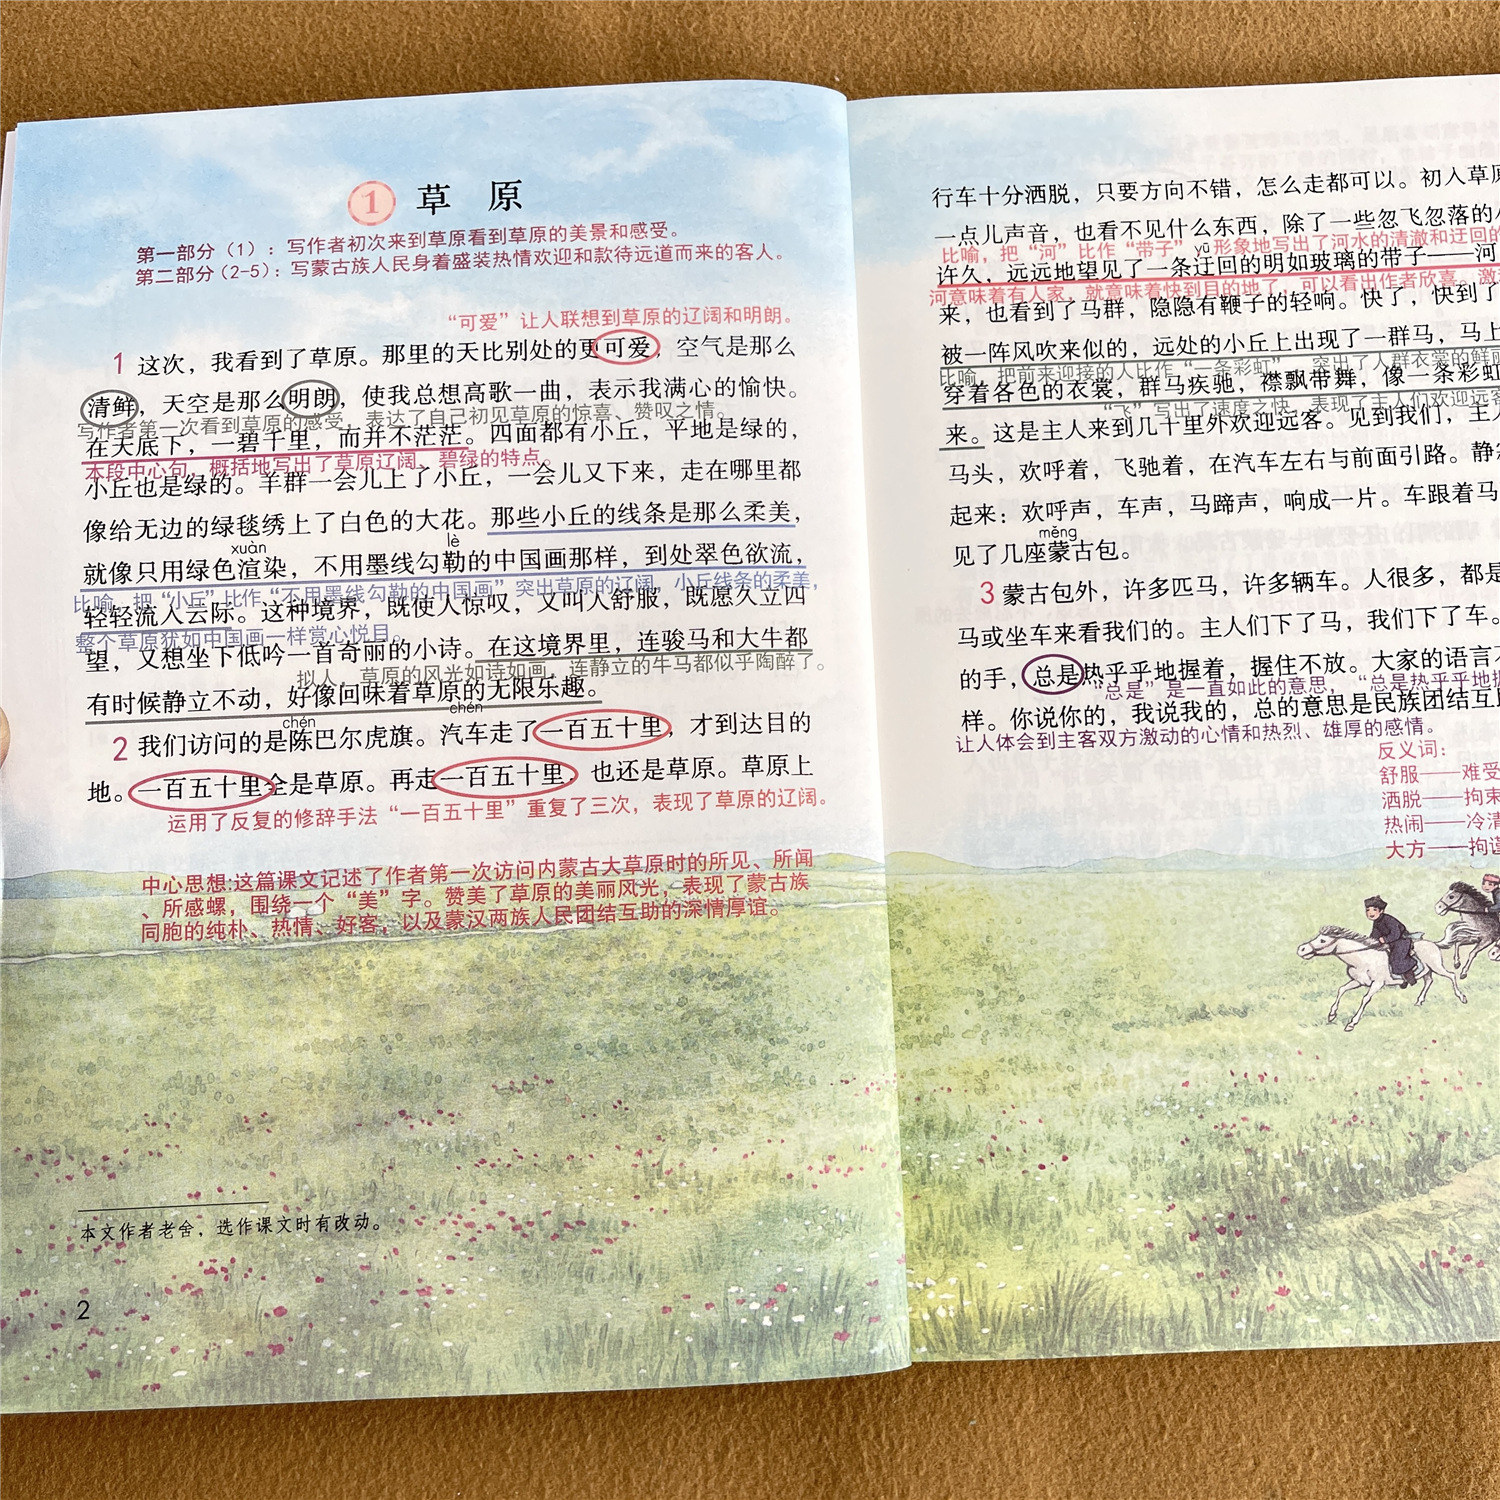 1 草 原
第一部分（1）：写作者初次来到草原看到草原的美景和感受。
第二部分（2-5）：写蒙古族人民身着盛装热情欢迎和款待远道而来的客人。
“可爱”让人联想到草原的辽阔和明朗。
1 这次，我看到了草原。那里的天比别处的更可爱，空气是那么
清鲜，天空是那么明朗，使我总想高歌一曲，表示我满心的愉快。
写作者第一次看到草原的感受，表达了自己初见草原的惊喜、赞叹之情。
在天底下，一碧千里，而并不茫茫。四面都有小丘，平地是绿的，
本段中心句，概括地写出了草原辽阔、碧绿的特点。
小丘也是绿的。羊群一会儿上了小丘，一会儿又下来，走在哪里都
像给无边的绿毯绣上了白色的大花。那些小丘的线条是那么柔美，
xuàn lè
就像只用绿色渲染，不用墨线勾勒的中国画那样，到处翠色欲流，
比喻，把“小丘”比作“不用墨线勾勒的中国画”突出草原的辽阔，小丘线条的柔美，
轻轻流入云际。这种境界，既使人惊叹，又叫人舒服，既愿久立四
整个草原犹如中国画一样赏心悦目。
望，又想坐下低吟一首奇丽的小诗。在这境界里，连骏马和大牛都
拟人，草原的风光如诗如画，连静立的牛马都似乎陶醉了。
有时候静立不动，好像回味着草原的无限乐趣。
chén chén
2 我们访问的是陈巴尔虎旗。汽车走了一百五十里，才到达目的
地。一百五十里全是草原。再走一百五十里，也还是草原。草原上
运用了反复的修辞手法“一百五十里”重复了三次，表现了草原的辽阔。
中心思想:这篇课文记述了作者第一次访问内蒙古大草原时的所见、所闻
、所感螺，围绕一个“美”字。赞美了草原的美丽风光，表现了蒙古族
同胞的纯朴、热情、好客，以及蒙汉两族人民团结互助的深情厚谊。
本文作者老舍，选作课文时有改动。
2
行车十分洒脱，只要方向不错，怎么走都可以。初入草原
一点儿声音，也看不见什么东西，除了一些忽飞忽落的小
比喻，把“河”比作“带子”，形象地写出了河水的清澈和迂回的
yū
许久，远远地望见了一条迂回的明如玻璃的带子——河
河意味着有人家，就意味着快到目的地了，可以看出作者欣喜。激
来，也看到了马群，隐隐有鞭子的轻响。快了，快到了
被一阵风吹来似的，远处的小丘上出现了一群马，马上
比喻，把前来迎接的人比作“一条彩虹”，突出了人群衣裳的鲜丽
穿着各色的衣裳，群马疾驰，襟飘带舞，像一条彩虹
“飞”写出了速度之快，表现了主人们欢迎远客
来。这是主人来到几十里外欢迎远客。见到我们，主人
马头，欢呼着，飞驰着，在汽车左右与前面引路。静
起来：欢呼声，车声，马蹄声，响成一片。车跟着马
měng
见了几座蒙古包。
3 蒙古包外，许多匹马，许多辆车。人很多，都是
马或坐车来看我们的。主人们下了马，我们下了车。
的手，总是热乎乎地握着，握住不放。大家的语言不
“总是”是一直如此的意思，“总是热乎乎地握
样。你说你的，我说我的，总的意思是民族团结互
让人体会到主客双方激动的心情和热烈、雄厚的感情。
反义词：
舒服——难受
洒脱——拘束
热闹——冷清
大方——拘谨